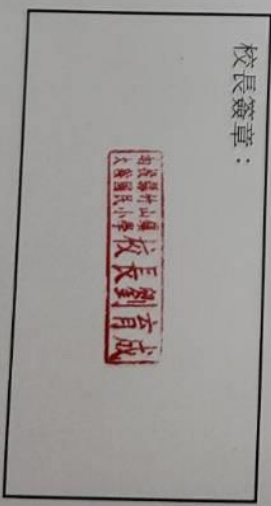 校長簽章：
南投縣竹山鎮
大鞍國民小學
校長劉育成